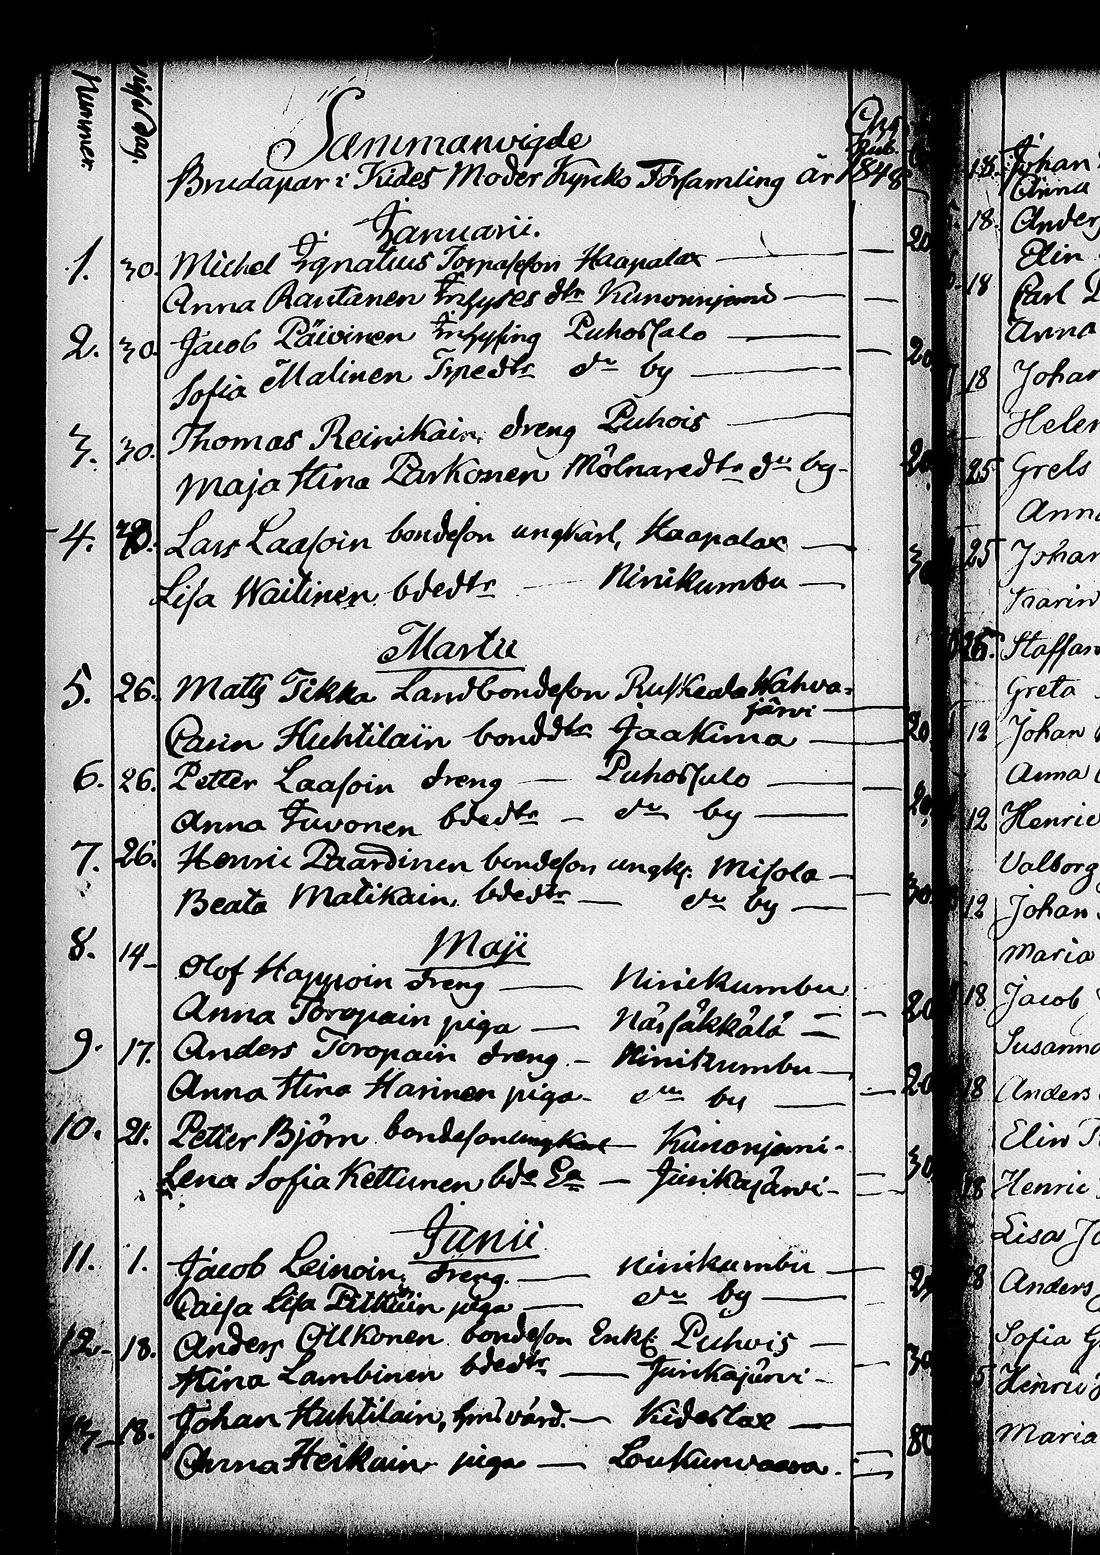 Nummer.
Vigsel Dag.
Sammanvigde
Brudapar i Kides Moder Kyrko Församling år 1848
Januarii.
1. 30. Michel Ignatius Tornasson Haapalax 20
Anna Rautanen Inhyses dtr Kunonniemi
2. 30. Jacob Päivinen Inhysing Puhossalo 20
Sofia Malinen Trpedtr do by
3. 30. Thomas Reinikain, dreng Puhois 20
Maja Stina Parkonen Mölnaredtr do by
4. 30. Lars Laasoin bondeson ungkarl, Haapalax 30
Lisa Waitinen bdedtr Ninikumbu
Martii
5. 26. Matts Tikka Landbondeson Ruskeala Wahva=
järvi
Carin Huhtilain bonddtr Jaakima 20
6. 26. Petter Laasoin dreng Puhossalo
Anna Juvonen bdedtr do by 20
7. 26. Henric Paardinen bondeson ungk: Misola
Beata Matikain, bdedtr do by 30
Maji
8. 14 Olof Happoin dreng Ninikumbu
Anna Toropain piga Närsäkkälä 20
9. 17. Anders Toropain dreng Ninikumbu
Anna Stina Harinen piga do by 20
10. 21. Petter Björn bondeson ungkarl Kunonjemi
Lena Sofia Kettunen bde Ea Jurikajärvi 30
Junii
11. 1. Jacob Leinoin, dreng. Ninikumbu
Caisa Lisa Pitkäin piga do by
12 18. Anders Ollkonen bondeson Enkl: Puhois
Stina Lambinen bdedtr Jurikajärvi 30
13 18. Johan Huhtilain, Kideslax
Anna Heikain piga Loukunvaara 80
18. Johan
Anna
18. Anders
Elin
18 Carl
Anna
18 Johan
Helen
25 Grels
Anna
25 Johan
Karin
25. Staffan
Greta
12 Johan
Anna
12 Henric
Valborg
12 Johan
Maria
18 Jacob
Susanna
18 Anders
Elin
18 Henric
Lisa
18 Anders
Sofia
Henric
Maria